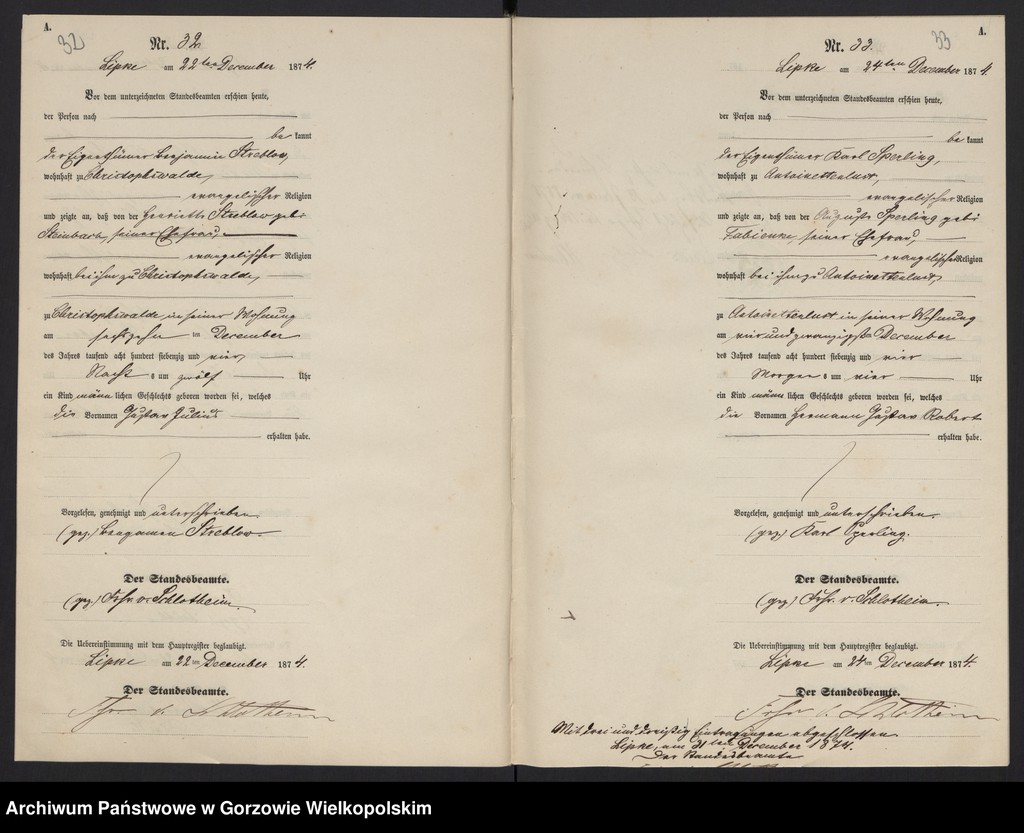 A.
32
Nr. 32
Lipke am 22ten December 1874.
Vor dem unterzeichneten Standesbeamten erschien heute,
der Person nach
be kannt
der Eigenthümer Benjamin Streblow,
wohnhaft zu Christophswalde,
evangelischer Religion
und zeigte an, daß von der Henriette Streblow geb:
Steinbach, seiner Ehefrau,
evangelischer Religion
wohnhaft bei ihm zu Christophswalde,
zu Christophswalde in seiner Wohnung
am sechszehn ten December
des Jahres tausend acht hundert siebenzig und vier,
Nacht s um zwölf Uhr
ein Kind männ lichen Geschlechts geboren worden sei, welches
die Vornamen Gustav Julius
erhalten habe.
Vorgelesen, genehmigt und unterschrieben.
(gez.) Bengamen Streblow.
Der Standesbeamte.
(gez.) Frhr. v. Schlotheim.
Die Uebereinstimmung mit dem Hauptregister beglaubigt.
Lipke am 22ten December 1874.
Der Standesbeamte.
Fhr v. Schlotheim
A.
33
Nr. 33.
Lipke am 24ten December 1874.
Vor dem unterzeichneten Standesbeamten erschien heute,
der Person nach
be kannt
der Eigenthümer Karl Sperling,
wohnhaft zu Antoinettenlust,
evangelischer Religion
und zeigte an, daß von der Auguste Sperling geb:
Fabienke, seiner Ehefrau,
evangelischer Religion
wohnhaft bei ihm zu Antoinettenlust,
zu Antoinettenlust in seiner Wohnung
am vierundzwanzigsten December
des Jahres tausend acht hundert siebenzig und vier
Morgen s um vier Uhr
ein Kind männ lichen Geschlechts geboren worden sei, welches
die Vornamen Hermann Gustav Robert
erhalten habe.
Vorgelesen, genehmigt und unterschrieben.
(gez) Karl Sperling.
Der Standesbeamte.
(gez) Frhr. v. Schlotheim.
Die Uebereinstimmung mit dem Hauptregister beglaubigt.
Lipke am 24ten December 1874.
Der Standesbeamte.
Frhr v. Schlotheim
Mit drei und dreißig Eintragungen abgeschlossen
Lipke, am 31ten December 1874.
Der Standesbeamte
Archiwum Państwowe w Gorzowie Wielkopolskim